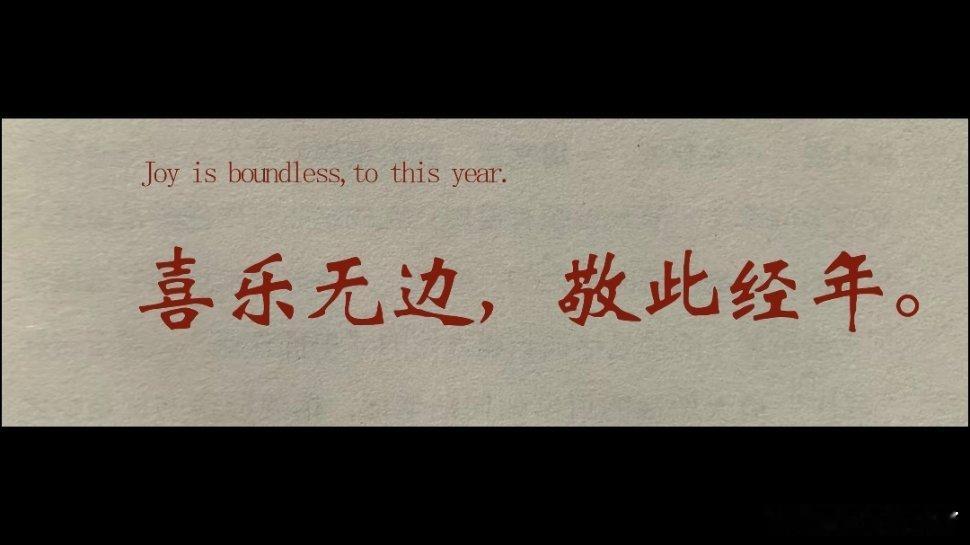 Joy is boundless,to this year.
喜乐无边，敬此经年。